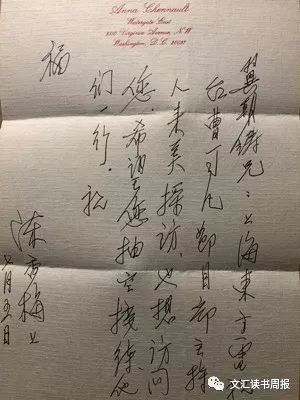 Anna Chennault
Watergate East
Virginia Avenue, N.W.
Washington, D.C. 20037
冀朝鑄兄：上海東方電視
台曹可凡節目部主持
人来美採訪，也想訪問
您，希望您抽空接待他
们一行。祝
福
陈香梅上
月五日
文汇读书周报